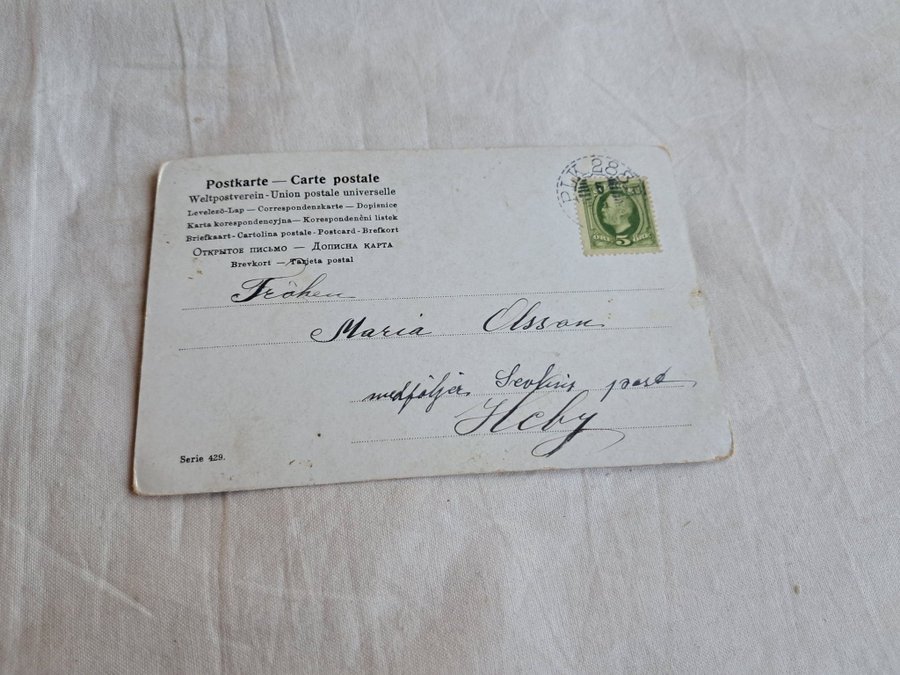 Postkarte — Carte postale
Weltpostverein - Union postale universelle
Levelező-Lap — Correspondenzkarte — Dopisnice
Karta korespondencyjna — Korespondenční listek
Briefkaart - Cartolina postale - Postcard - Brefkort
Открытое письмо — Дописна карта
Brevkort — Tarjeta postal
PLK 285
5
ÖRE 5 ÖRE
Fröken
Maria Olsson
medföljer post
Heby
Serie 429.